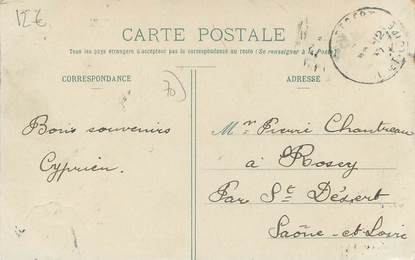 12€
CARTE POSTALE
Tous les pays étrangers n'acceptent pas la correspondance au recto (Se renseigner à la Poste)
CORRESPONDANCE
ADRESSE
70)
Bons souvenirs
Cyprien.
Mr Pierre Chantreau
à Rosey
Par St Désert
Saône-et-Loire